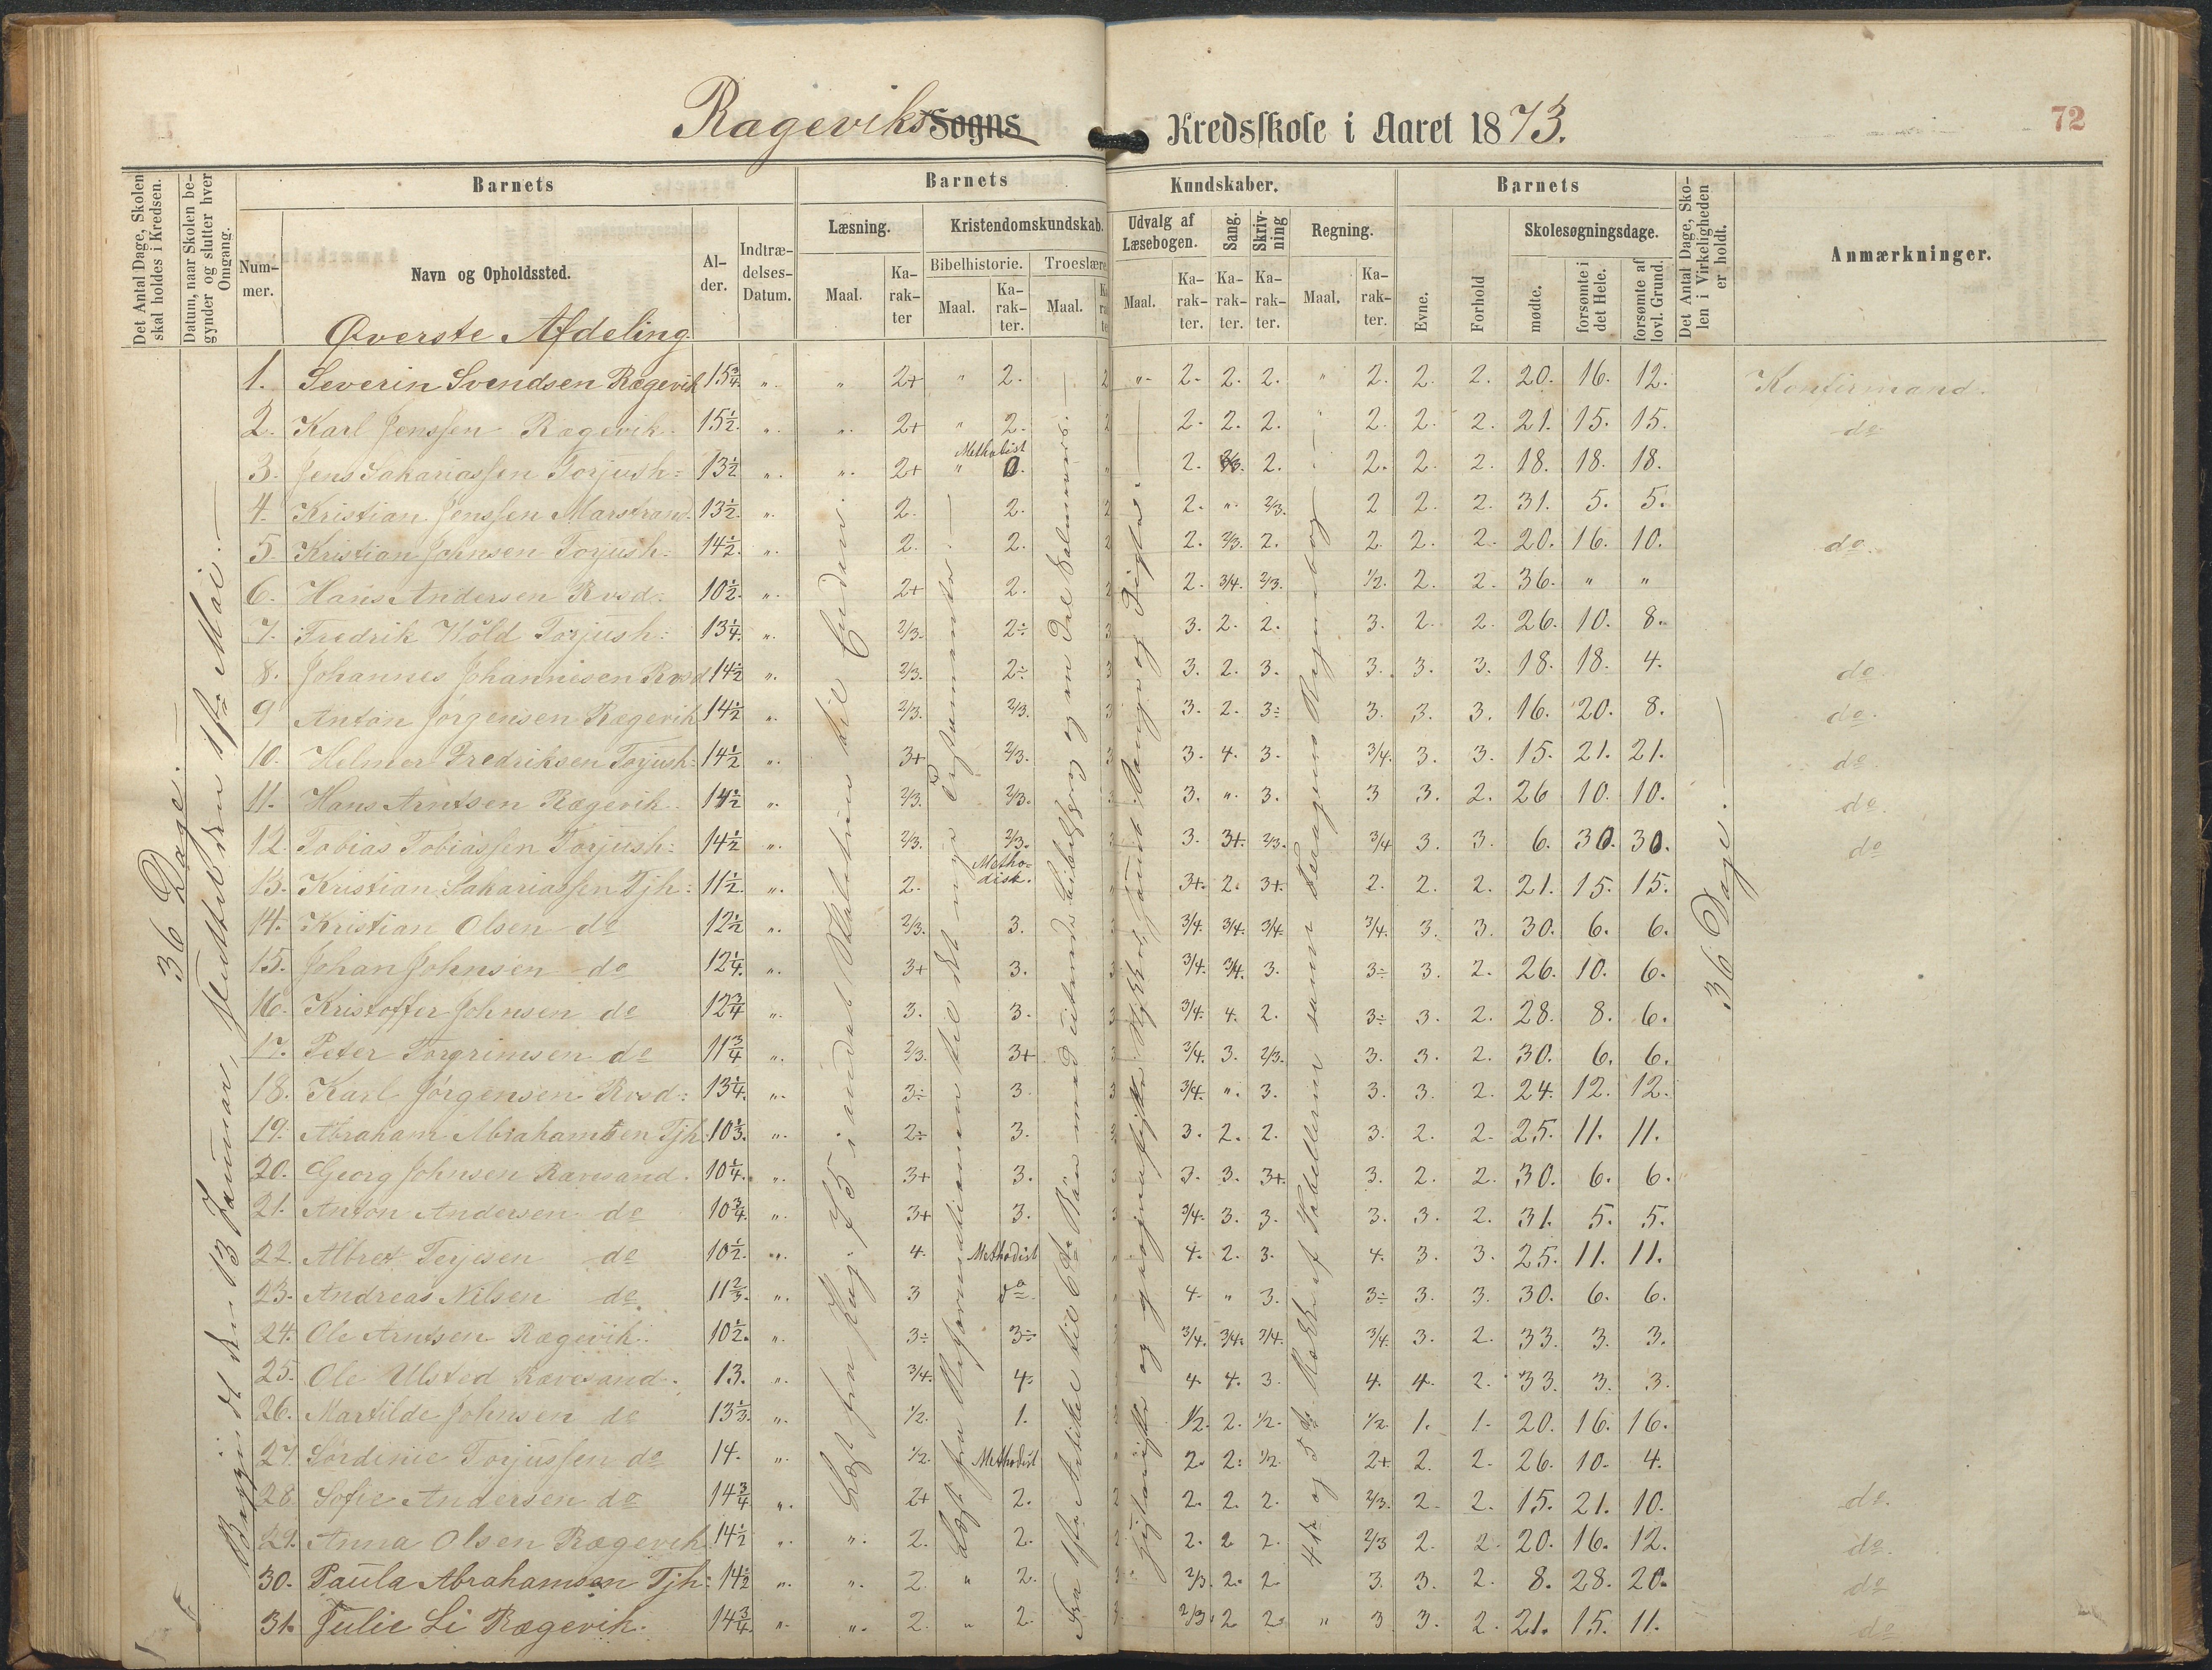 Rageviks Sogns Kredsskole i Aaret 1873.
72
Det Antal Dage, Skolen skal holdes i Kredsen.
Datum, naar Skolen begynder og slutter hver Omgang.
Barnets
Nummer.
Navn og Opholdssted.
Alder.
Indtrædelses-Datum.
Barnets Kundskaber.
Læsning.
Maal.
Karakter
Kristendomskundskab.
Bibelhistorie.
Maal.
Karakter.
Troeslære
Maal.
Udvalg af Læsebogen.
Maal.
Karakter.
Sang.
Karakter.
Skrivning
Karakter.
Regning.
Maal.
Karakter.
Barnets
Evne.
Forhold
Skolesøgningsdage.
mødte.
forsømte i det Hele.
forsømte af lovl. Grund.
Det Antal Dage, Skolen i Virkeligheden er holdt.
Anmærkninger.
Øverste Afdeling
36 Dage.
36 Dage.
1. Severin Svendsen Rægevik 15 3/4 " " 2+ " 2. 2 " 2. 2. 2. " 2. 2. 2. 20. 16. 12. Konfirmand.
2. Karl Jenssen Rægevik 15 1/2 " " 2+ " 2. 2 2. 2. 2. " 2. 2. 2. 21. 15. 15. do
3. Jens Sakariassen Torjush: 13 1/2 " " 2+ " Methodist 0. " 2. 2/3. 2. 2. 2. 2. 18. 18. 18.
4. Kristian Jenssen Marstrand 13 1/2 " 2. 2. 2 2. " 2/3. 2 2. 2. 31. 5. 5.
5. Kristian Johnsen Torjush: 14 1/2 " 2. 2. 2 2. 2/3. 2. 2. 2. 2. 20. 16. 10. do
6. Hans Andersen Rvsd: 10 1/2 " 2+ 2. 2 2. 3/4. 2/3. 1/2. 2. 2. 36. " "
7. Fredrik Wold Torjush: 13 1/4 " 2/3. 2÷ 3 3. 2. 2. 3. 2. 2. 26. 10. 8.
8. Johannes Johannesen Rvsd 14 1/2 " 2/3. 2÷ 3 3. 2. 3. 3. 3. 3. 18. 18. 4. do
9 Anton Jørgensen Rægevik 14 1/2 " 2/3. 2/3. 3 3. 2. 3÷ 3. 3. 3. 16. 20. 8. do.
10. Helmer Fredriksen Torjush: 14 1/2 " 3+ 2/3. 3 3. 4. 3. 3/4. 3. 3. 15. 21. 21. do.
11. Hans Arntsen Rægevik 14 1/2 " 2/3. 2/3. 3 3. " 3. 3 3. 2. 26 10. 10. do.
12. Tobias Tobiassen Torjush: 14 1/2 " 2/3. 2/3. 3. 3+. 2/3. 3/4 3. 3. 6. 30. 30. do
13. Kristian Sakariassen Tjh: 11 1/2 " 2. Methodist. " 3+. 2. 3+. 2. 2. 2. 21. 15. 15.
14. Kristian Olsen do 12 1/2 " 2/3. 3. 3 3/4. 3/4. 3/4. 3/4. 3. 3. 30. 6. 6.
15. Johan Johnsen do 12 1/4 " 3+ 3. 3 3/4. 3/4. 3. 3÷ 3. 2. 26. 10. 6.
16. Kristoffer Johnsen do 12 3/4 " 3. 3. 3 3/4. 4. 2. 3÷ 3. 2. 28. 8. 6.
17. Peter Torgrimsen do 11 3/4 " 2/3. 3+ 3 3/4. 3. 2/3. 3. 3. 2. 30. 6. 6.
18. Karl Jörgensen Rvsd: 13 1/4 " 3÷ 3 3 3/4. " 3. 3. 3. 2. 24. 12. 12.
19. Abraham Abrahamsen Tjh 10 1/3 " 2÷ 3. 3. 2. 2. 3. 2. 2. 25. 11. 11.
20. Georg Johnsen Ravesand 10 1/4 " 3+ 3. 3 3. 3. 3+. 3. 2. 2. 30. 6. 6.
21. Anton Andersen do 10 3/4 " 3+ 3. 3 3/4. 3. 3. 3. 3. 2. 31. 5. 5.
22. Albret Terjesen do 10 1/2 " 4. Methodist " 4. 2. 3. 4. 3. 3. 25. 11. 11.
23. Andreas Nilsen do 11 2/3 " 3 do " 4. " 3. 3÷ 3. 3. 30. 6. 6.
24. Ole Arntsen Rægevik 10 1/2 " 3÷ 3÷ 3/4. 3/4. 3/4. 3/4. 3. 2. 33. 3. 3.
25. Ole Ulsted Ravesand. 13. " 3/4. 4. 4. 4. 3. 4. 4. 2. 33. 3. 3.
26. Martilde Johnsen do 13 1/3 " 1/2. 1. 1/2. 2. 1/2. 1/2. 1. 1. 20. 16. 16.
27. Sørdinie Torjussen do 14. " 1/2. Methodist " 2. 2. 1/2. 2+. 2. 2. 26. 10. 4.
28. Sofie Andersen do 14 3/4 " 2+ 2. 2 2. 2. 2. 2/3. 2. 2. 15. 21. 10. do.
29. Anna Olsen Rægevik 14 1/2 " " 2. 2. 2 2. 2 2. 2/3 2. 2. 20. 16. 12. do.
30. Paula Abrahamsen Tjh: 14 1/2 " " 2. " 2. 2/3. 2. 2. 3. 3. 2. 8. 28. 20. do
31. Julie Li Rægevik. 14 3/4 " " 2. " 2. 3. 2/3. 2 2. " 3 3. 2. 21. 15. 11. do
Begyndt den 13 Januar, sluttet den 1ste Mai.
Læst fra Pag: 75 i andet Skoletrin til Enden.
Læst fra Reformationen til det nye Testamente.
4de og 5te Række af Tabellerne samt Regnebog